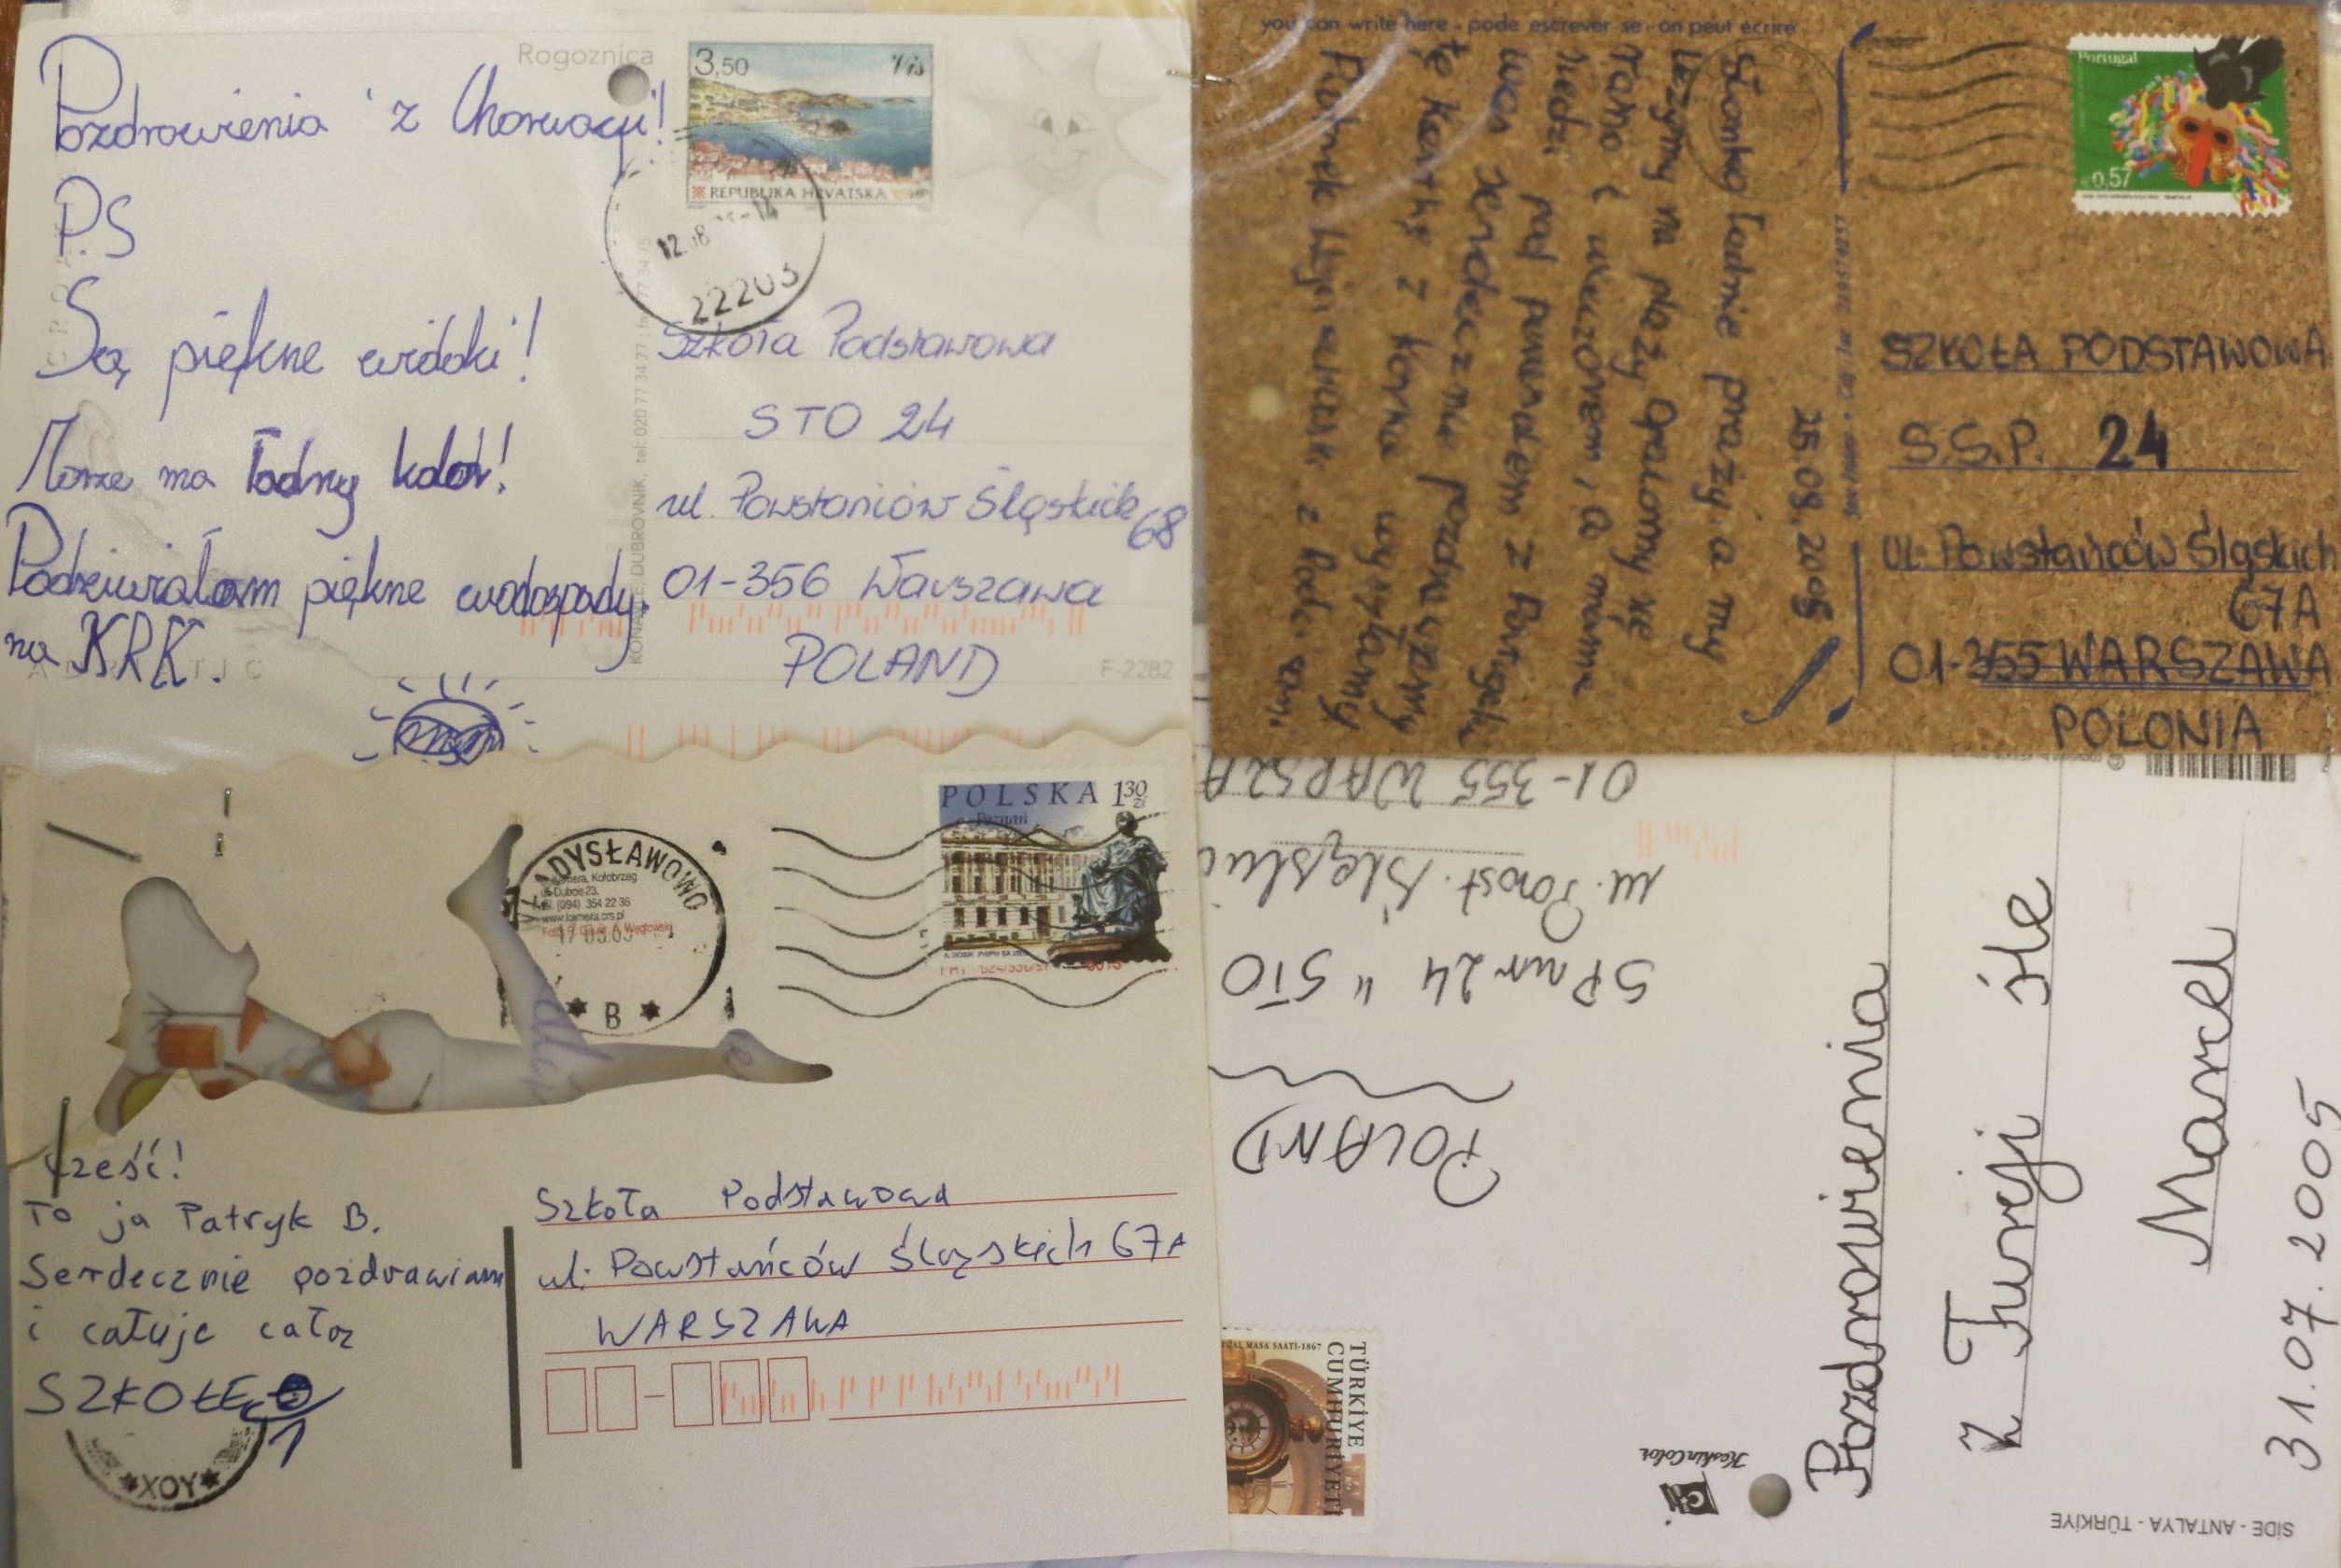 Rogoznica
Pozdrowienia z Chorwacji!
PS
Są piękne widoki!
Morze ma ładny kolor!
Podziwiałam piękne wodospady
na KRK.
3,50 Vis
REPUBLIKA HRVATSKA
12.
22203
KONAVLE, DUBROVNIK, tel: 020 77 34 77
Szkoła Podstawowa
STO 24
ul. Powstańców Śląskich
68
01-356 Warszawa
POLAND
F-2282
you can write here - pode escrever se - on peut écrire
25.08.2005
Słonko ładnie praży, a my
leżymy na plaży. Opalamy się
rano i wieczorem, a mama
siedzi pod parawanem z Portugalii
was serdecznie pozdrawiamy
tę kartkę z korka wysyłamy
Portugal
€0,57
SZKOŁA PODSTAWOWA
S.S.P. 24
ul. Powstańców Śląskich
67A
01-355 WARSZAWA
POLONIA
POLSKA 130 zł
Poznań
WŁADYSŁAWOWO
Kołobrzeg
(094) 354 22 36
B
Cześć!
To ja Patryk B.
Serdecznie pozdrawiam
i całuję całą
SZKOŁĘ
1
XOY
Szkoła Podstawowa
ul. Powstańców Śląskich 67A
WARSZAWA
Pozdrowienia
z Turcji śle
Marcel
31.07.2005
POLAND
SP nr 24 "STO
ul. Powst. Śląskic
01-355 WARSZA
TÜRKİYE
CUMHURİYETİ
MASA SAATI-1867
KeskinColor
SİDE - ANTALYA - TÜRKİYE